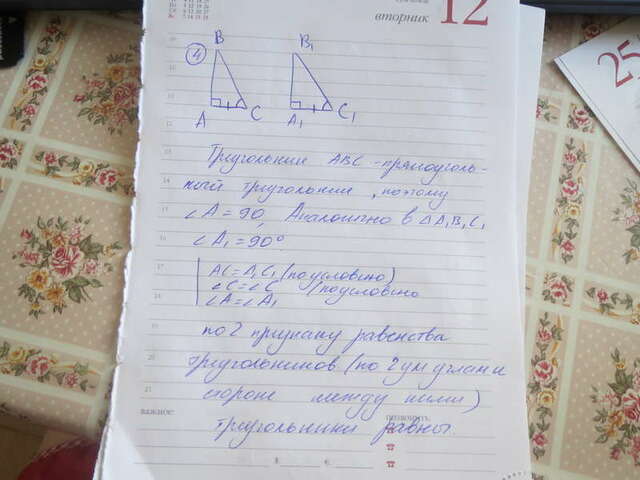 вторник 12
25
④ B B₁
A C A₁ C₁
Треугольник ABC - прямоуголь-
ный треугольник, поэтому
∠A = 90°, Аналогично в △A₁B₁C₁
∠A₁ = 90°
AC = A₁C₁ (по условию)
∠C = ∠C (по условию
∠A = ∠A₁
по 2 признаку равенства
треугольников (по 2ум углам и
стороне между ними)
треугольники равны.
важное: позвонить: